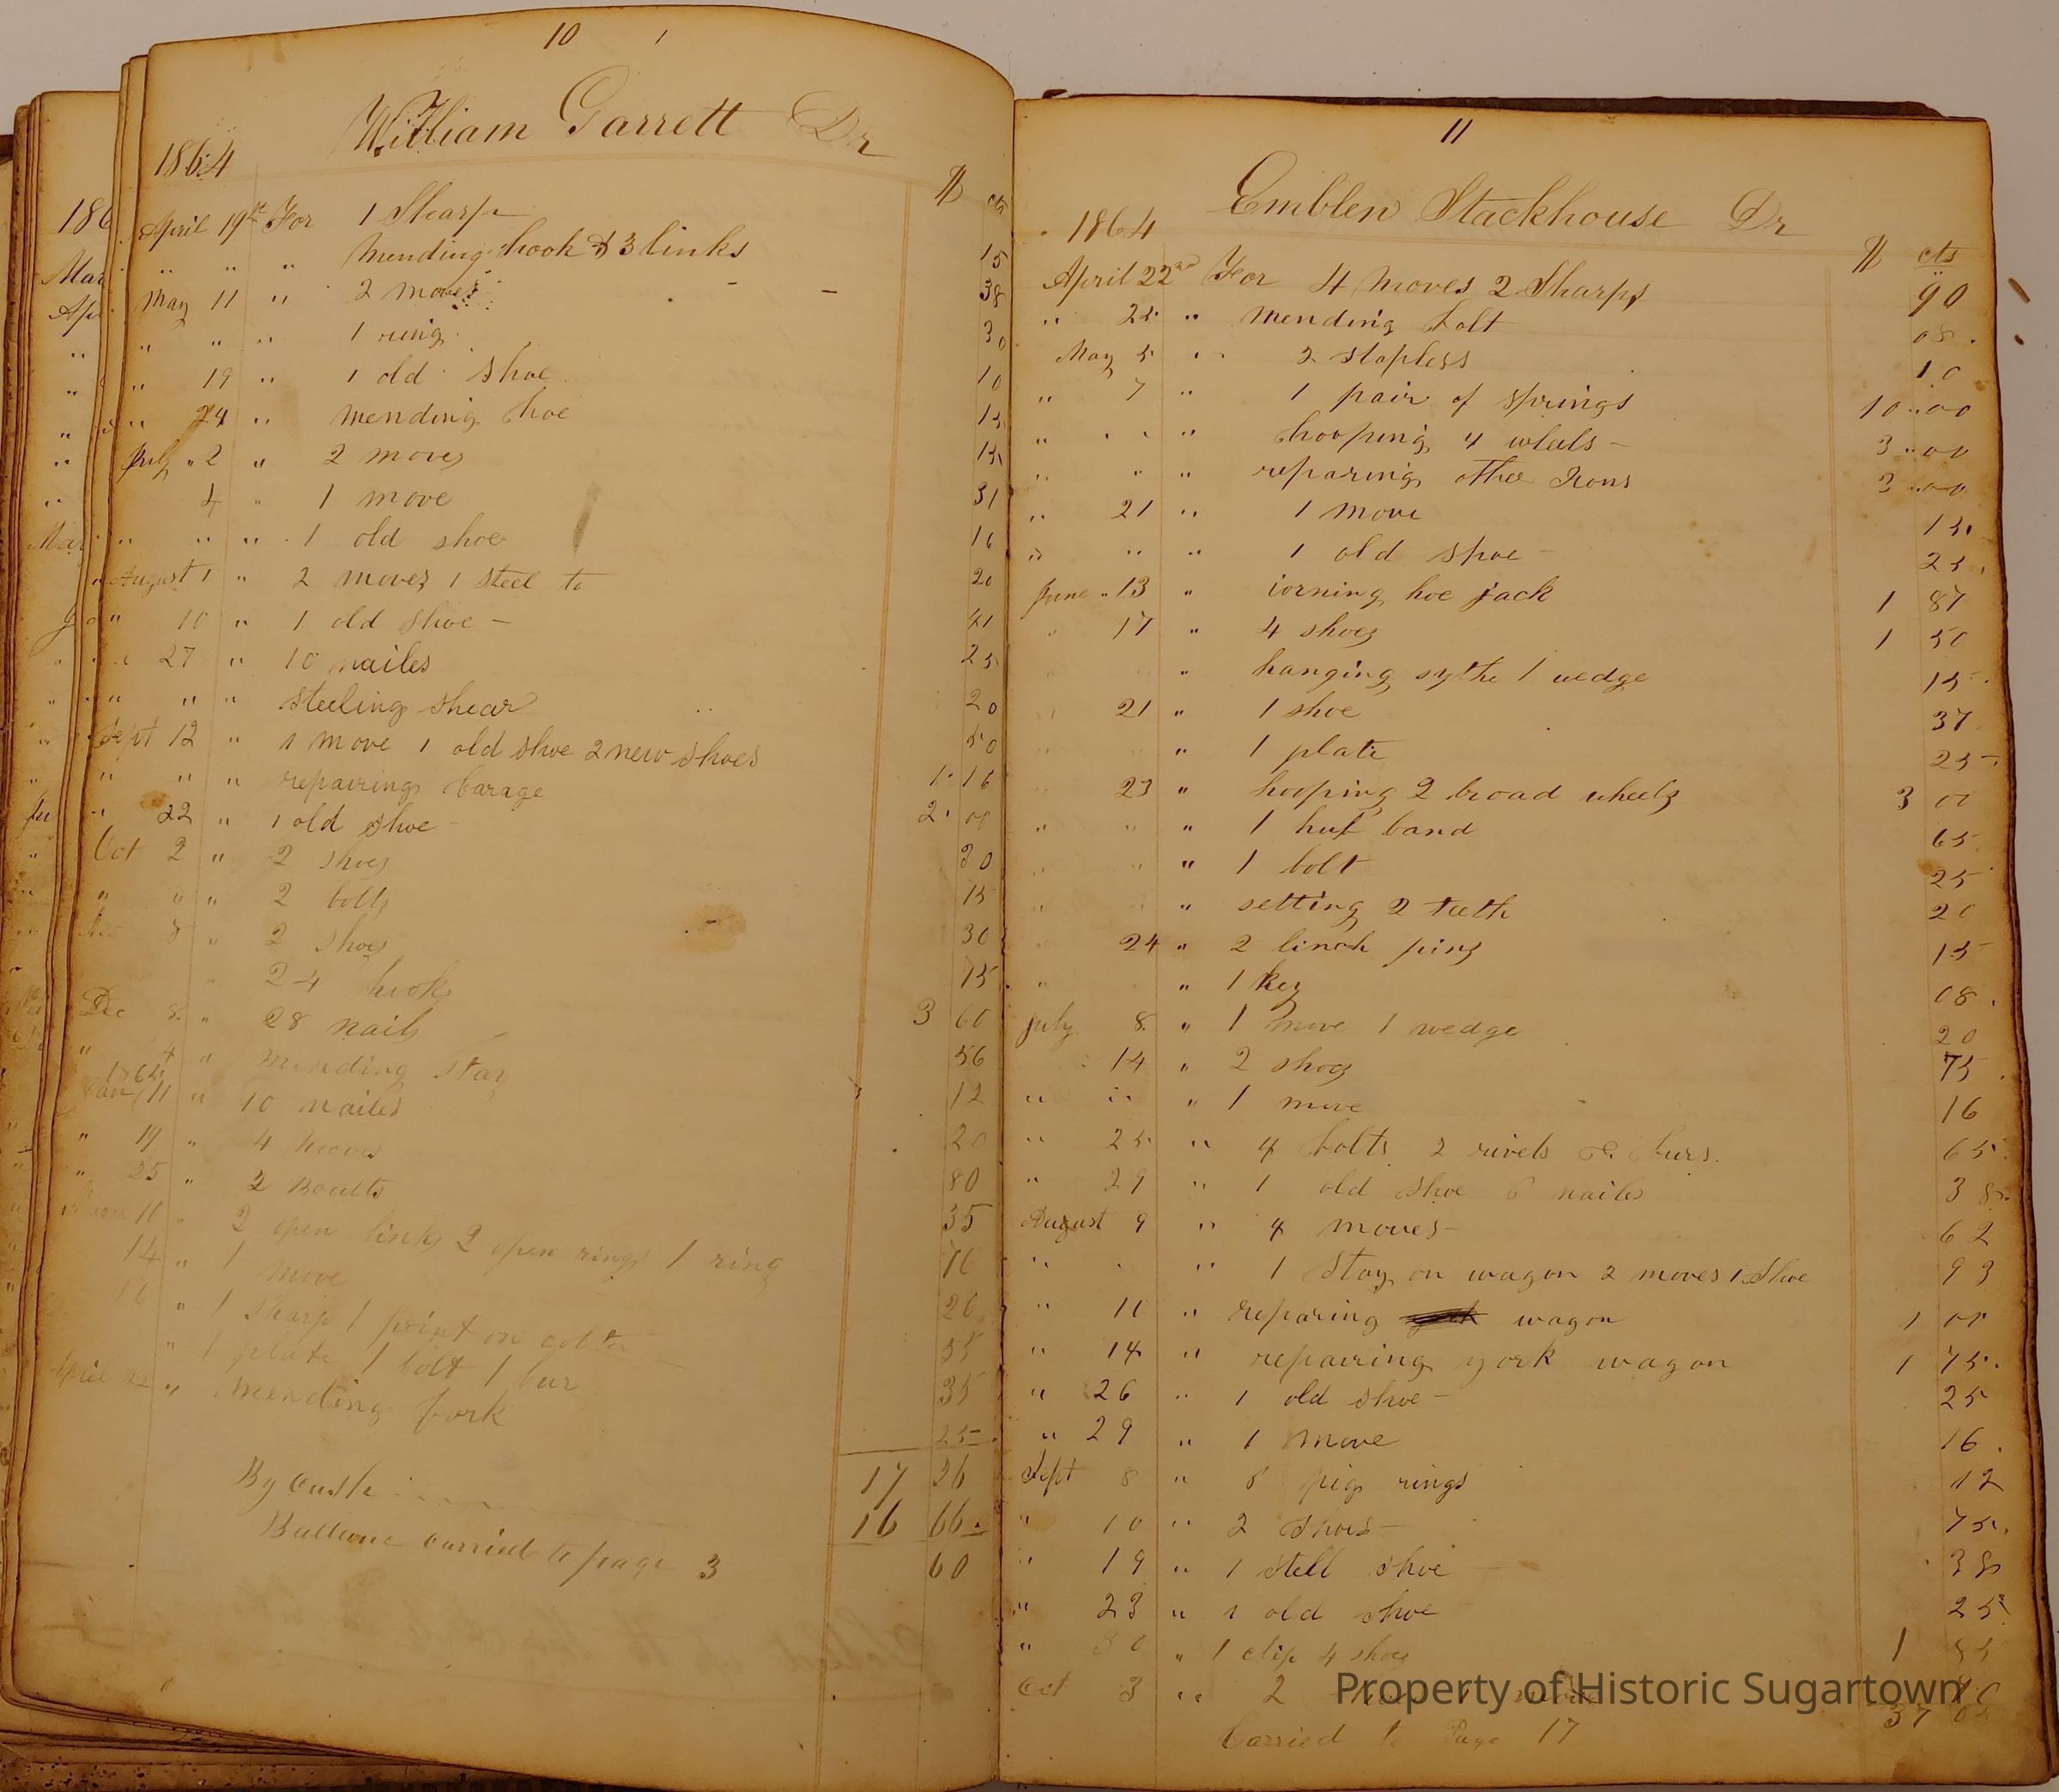 10
William Garrett Dr
1864
$ cts
April 19th For 1 Sharp 15
" " " Mending hook & 3 links 38
May 11 " 2 moves 30
" " " 1 ring 10
" 19 " 1 old shoe 15
" 24 " mending hoe 15
July 2 " 2 moves 31
4 " 1 move 16
" " " 1 old shoe 20
August 1 " 2 moves 1 steel to 41
" 10 " 1 old shoe 25
" 27 " 10 nailes 20
" " " steeling shear 50
Sept 12 " 1 move 1 old shoe 2 new shoes 1 16
" " " repairing Carage 2 00
" 22 " 1 old shoe 30
Oct 2 " 2 shoes 15
" " " 2 bolts 30
8 " 2 shoes 75
" 24 hooks 3 60
Dec 8 " 28 nails 56
" " mending stay 12
Jan 11 " 10 nailes 20
" 19 " 4 moves 80
" 25 " 2 Boults 35
11 " 2 open links 2 open rings 1 ring 76
14 " 1 move 20
16 " 1 sharp 1 point on colter 55
" 1 plate 1 bolt 1 bur 35
April 22 " mending fork 25
17 26
By Cash 16 66
Ballance carried to page 3 60
11
Emblen Stackhouse Dr
1864
$ cts
April 22nd For 4 moves 2 Sharps 90
" 25 " mending bolt 08
May 5 " 2 stapless 10
" 7 " 1 pair of springs 10 00
" " " hooping 4 wheels 3 00
" " " reparing other Irons 3 00
" 21 " 1 move 15
" " " 1 old shoe 25
June 13 " iorning hoe jack 1 87
" 17 " 4 shoes 1 50
" hanging sythe 1 wedge 15
21 " 1 shoe 37
" 1 plate 25
23 " hooping 2 broad wheels 3 00
" " " 1 hub band 65
" 1 bolt 25
" setting 2 teeth 20
24 " 2 linch pins 15
" " 1 key 08
July 8 " 1 move 1 wedge 20
14 " 2 shoes 75
" " " 1 move 16
" 25 " 4 bolts 2 rivets & burs 65
" 29 " 1 old shoe 6 nailes 38
August 9 " 4 moves 62
" " 1 Stay on wagon 2 moves 1 Shoe 93
" 11 " reparing wagon 1 00
" 14 " repairing york wagon 1 75
" 26 " 1 old shoe 25
" 29 " 1 move 16
Sept 8 " 6 pig rings 12
" 10 " 2 Shoes 75
" 19 " 1 stell shoe 38
" 23 " 1 old shoe 25
" 30 " 1 clip 4 shoes 1
Oct 3 " 2
Carried to Page 17 37
Property of Historic Sugartown